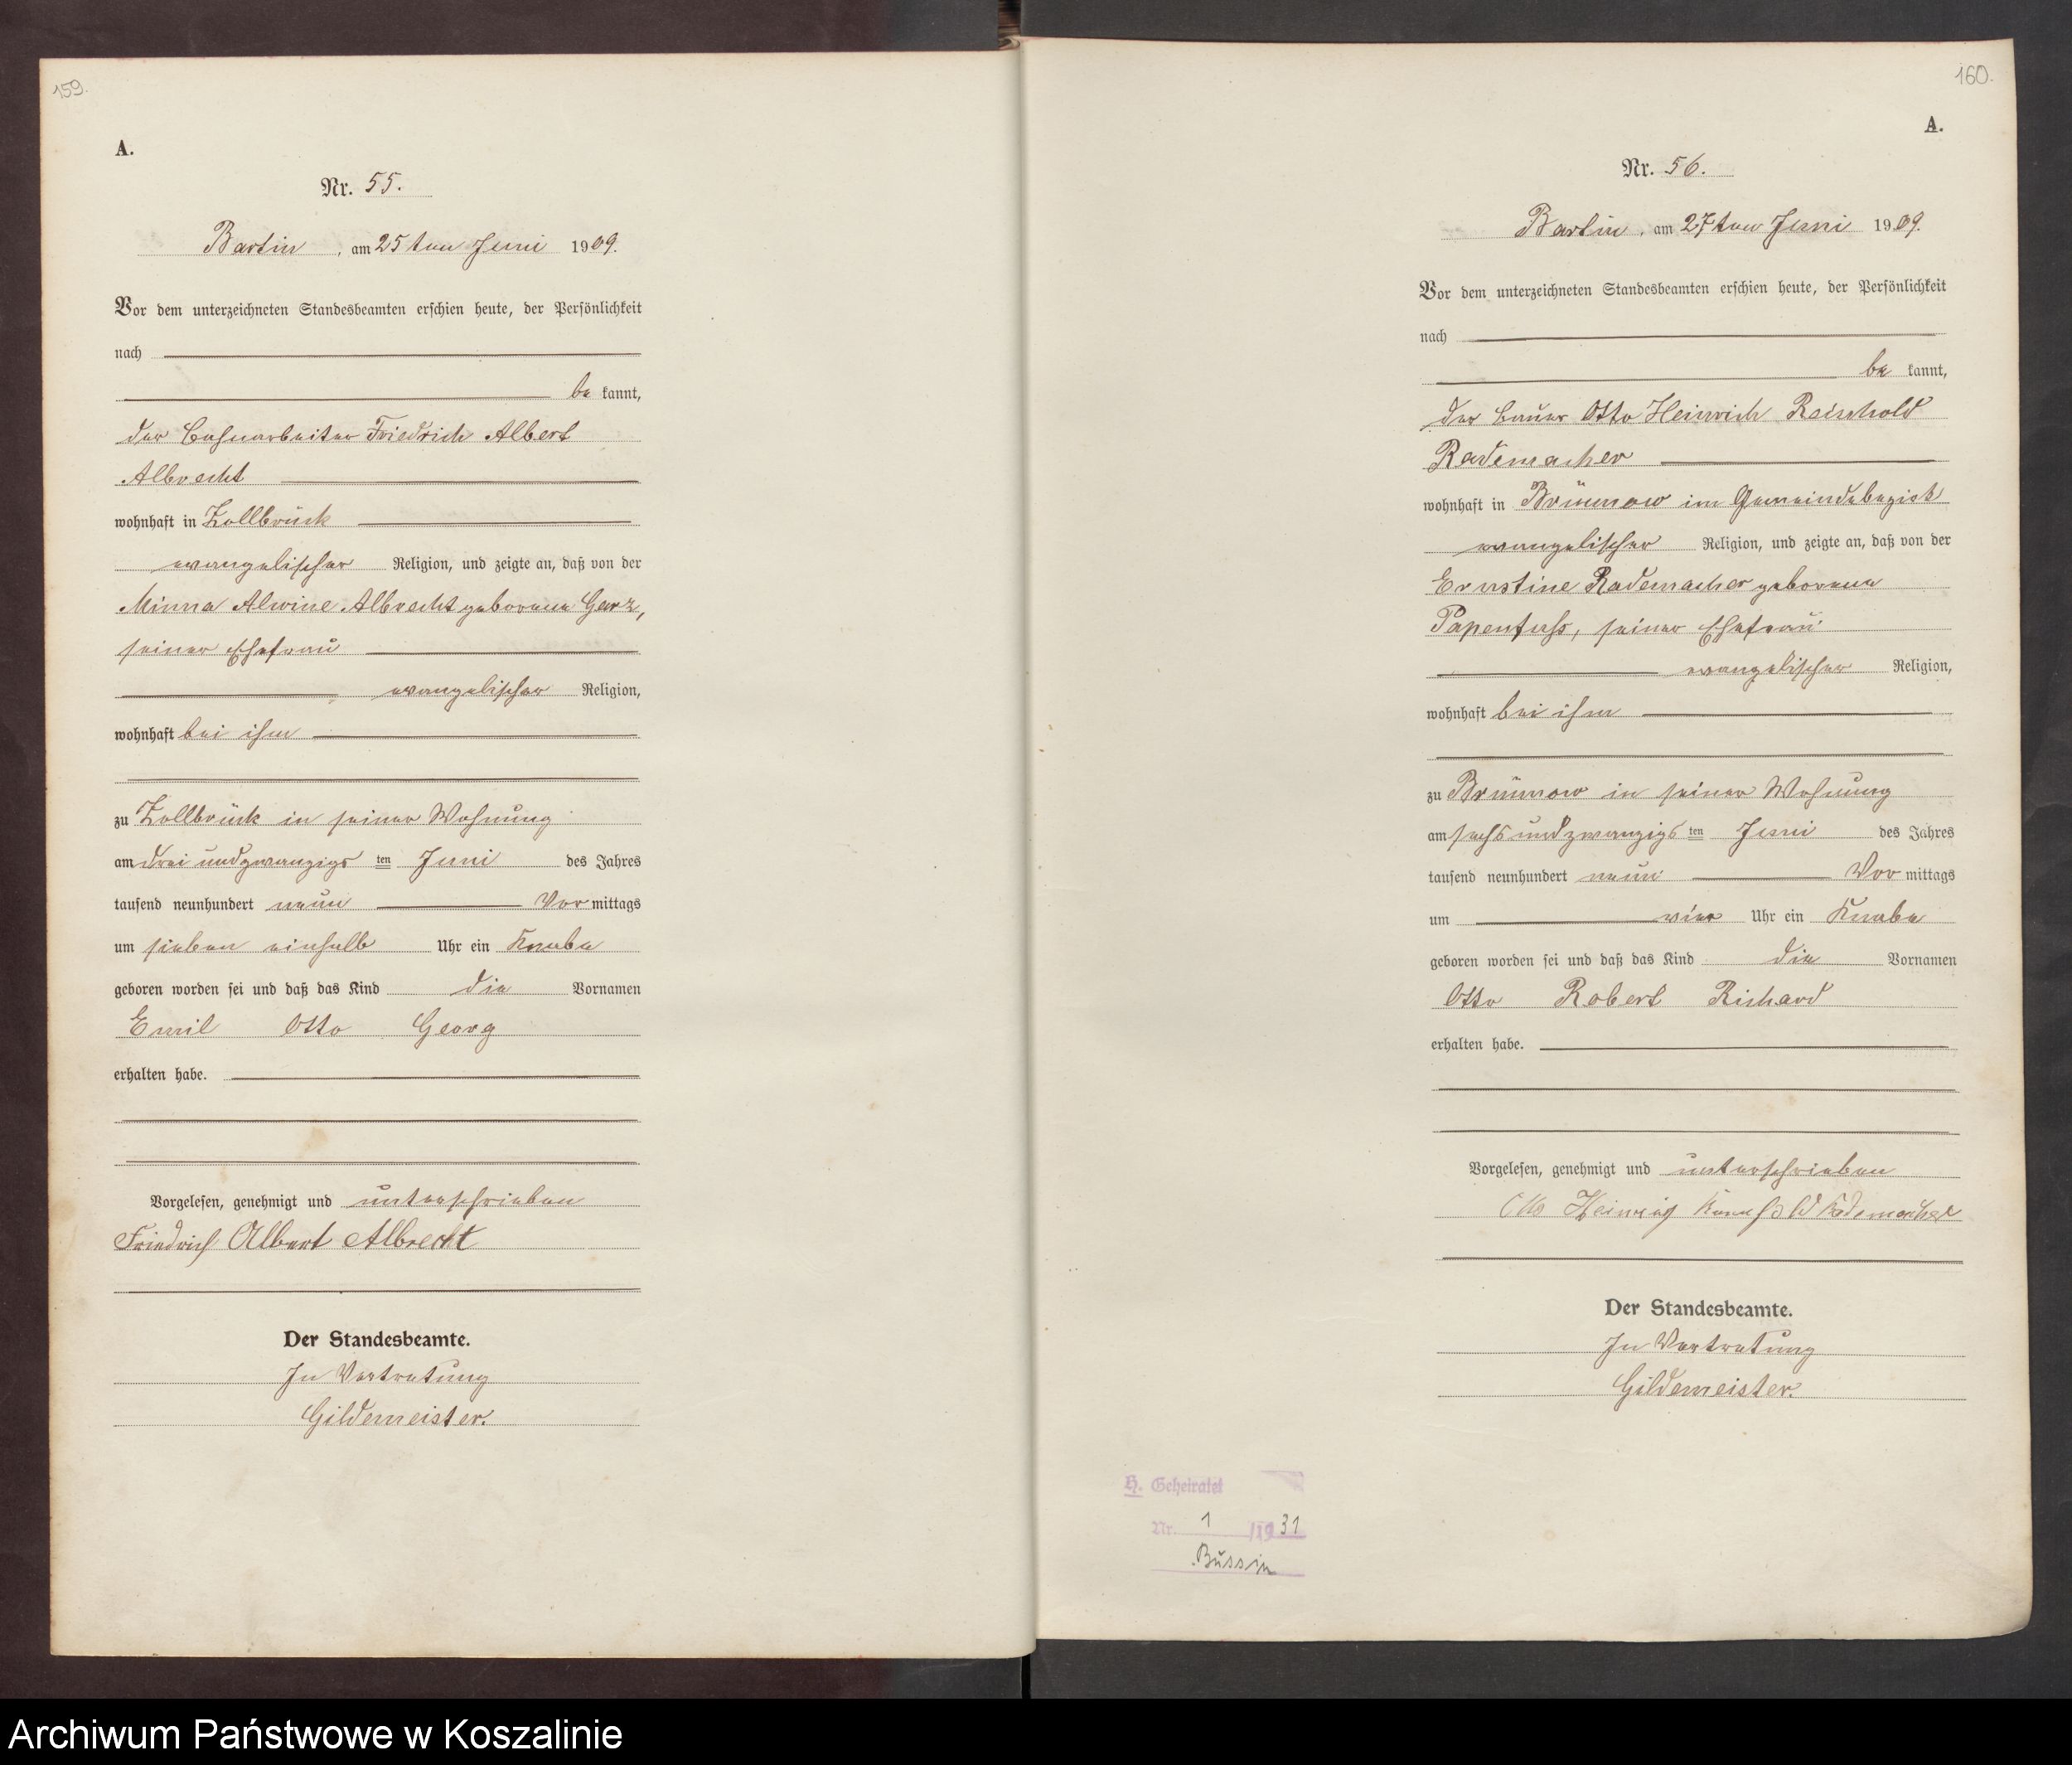 159.
A.
Nr. 55.
Bartin, am 25ten Juni 1909.
Vor dem unterzeichneten Standesbeamten erschien heute, der Persönlichkeit
nach
be kannt,
der Bahnarbeiter Friedrich Albert
Albrecht
wohnhaft in Zollbrück
evangelischer Religion, und zeigte an, daß von der
Minna Alwine Albrecht geborene Garz,
seiner Ehefrau
evangelischer Religion,
wohnhaft bei ihm
zu Zollbrück in seiner Wohnung
am drei und zwanzigs ten Juni des Jahres
tausend neunhundert neun Vor mittags
um sieben einhalb Uhr ein Knabe
geboren worden sei und daß das Kind die Vornamen
Emil Otto Georg
erhalten habe.
Vorgelesen, genehmigt und unterschrieben
Friedrich Albert Albrecht
Der Standesbeamte.
In Vertretung
Gildemeister.
160.
A.
Nr. 56.
Bartin, am 27ten Juni 1909.
Vor dem unterzeichneten Standesbeamten erschien heute, der Persönlichkeit
nach
be kannt,
der Bauer Otto Heinrich Reinhold
Rademacher
wohnhaft in Brünnow im Gemeindebezirk
evangelischer Religion, und zeigte an, daß von der
Ernstine Rademacher geborene
Papenfuss, seiner Ehefrau
evangelischer Religion,
wohnhaft bei ihm
zu Brünnow in seiner Wohnung
am sechs und zwanzigs ten Juni des Jahres
tausend neunhundert neun Vor mittags
um vier Uhr ein Knabe
geboren worden sei und daß das Kind die Vornamen
Otto Robert Richard
erhalten habe.
Vorgelesen, genehmigt und unterschrieben
Otto Heinrich Rademacher
Der Standesbeamte.
In Vertretung
Gildemeister.
H. Geheiratet
Nr. 1 /1931
Bussin
Archiwum Państwowe w Koszalinie